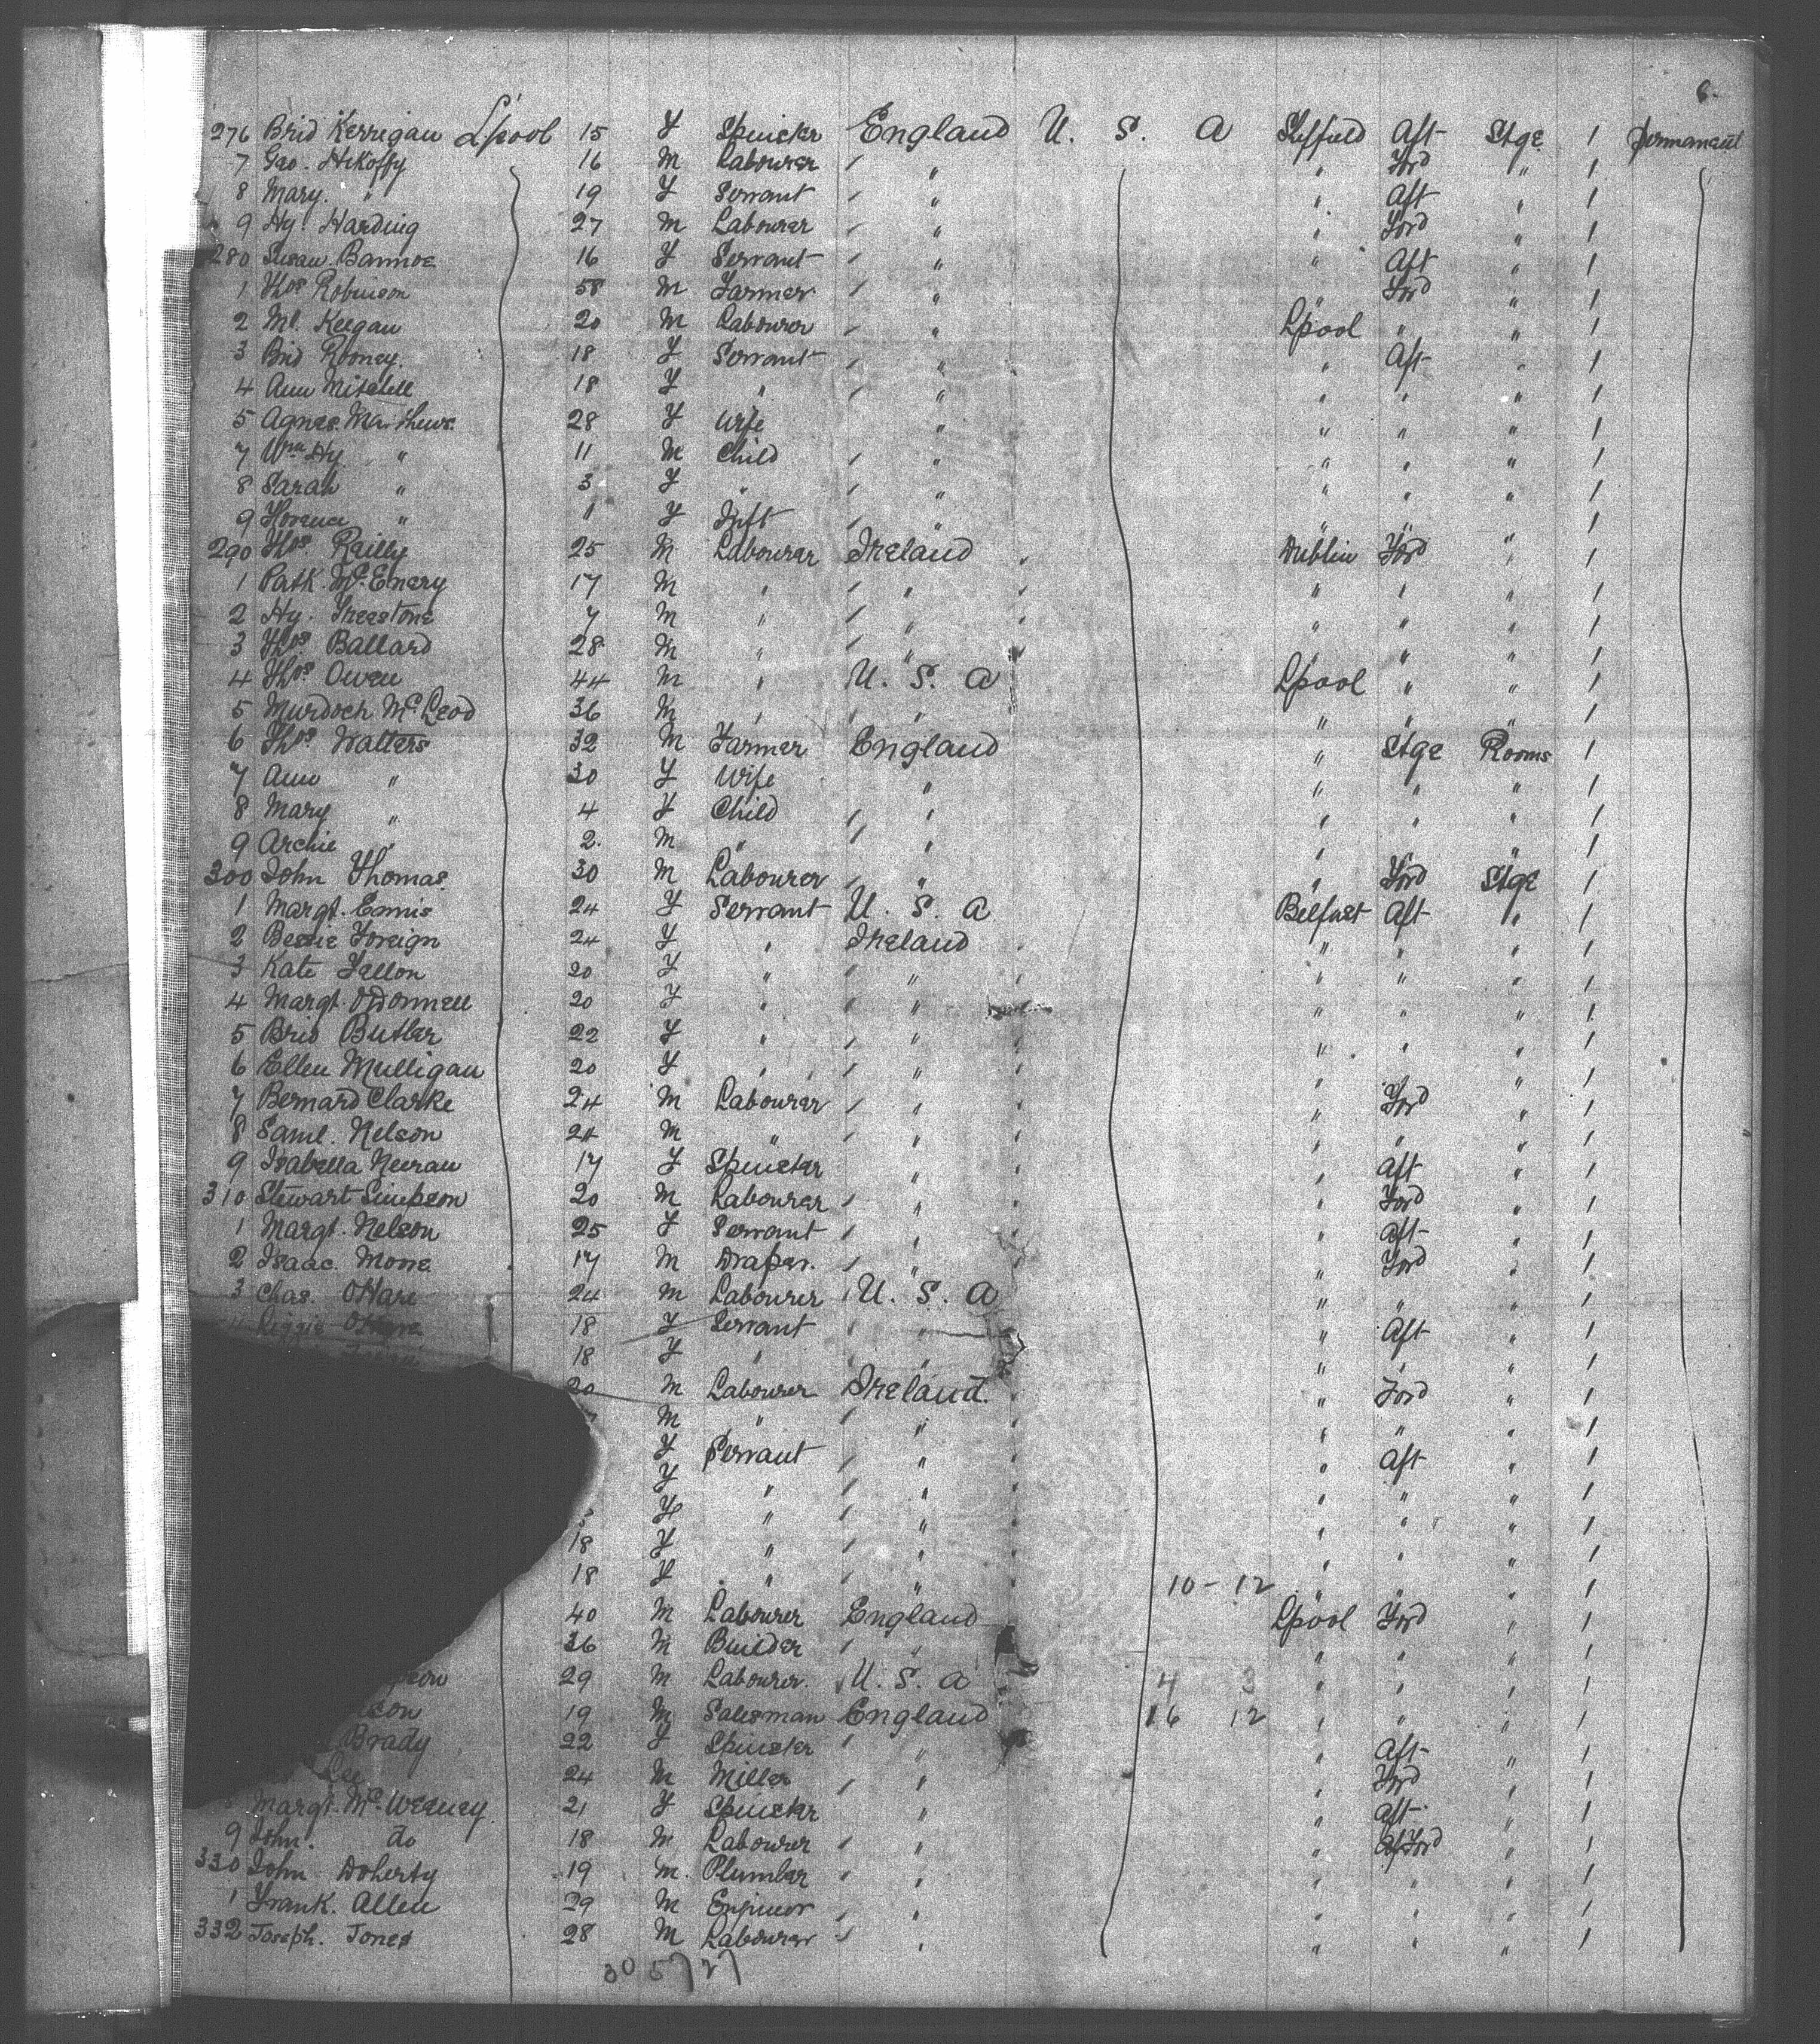 6.
276 Brid Kerrigan L'pool 15 F Spinster England U. S. A Sheffield Aft Stge 1 Permanent
7 Geo. 16 M Labourer / " " Ford " 1
8 Mary. " 19 F Servant / " " Aft " 1
9 Hy. Harding 27 M Labourer / " " Ford " 1
280 Susan 16 F Servant / " " Aft " 1
1 Thos Robinson 58 M Farmer / " " Ford " 1
2 Ml. Keegan 20 M Labourer / " Lpool " " 1
3 Brid Rooney. 18 F Servant / " " Aft " 1
4 Ann Mitchell 18 F " / " " " " 1
5 Agnes. Matthews. 28 F Wife " " " " 1
7 Wm Hy. " 11 M Child / " " " " 1
8 Sarah " 3 F " / " " " " 1
9 " 1 F Inft / " " " " 1
290 Thos. Reilly 25 M Labourer Ireland " Dublin Ford " 1
1 Patk. McEnery 17 M " / " " " " " 1
2 Hy. Freestone 7 M " / " " " " " 1
3 Thos. Ballard 28 M " / " " " " " 1
4 Thos Owen 44 M " U. S. A Lpool " " 1
5 Murdoch McLeod 36 M " / " " " " 1
6 Thos Walters 32 M Farmer England " Stge Rooms 1
7 Ann " 30 F Wife " " " " 1
8 Mary " 4 F Child / " " " " 1
9 Archie " 2. M " / " " " " 1
300 John Thomas. 30 M Labourer / " " Ford Stge 1
1 Margt. Ennis 24 F Servant U. S. A Belfast Aft " 1
2 Bessie Foreign 24 F " Ireland " " " " 1
3 Kate Fallon 20 F " / " " " " " 1
4 Margt. O'Donnell 20 F " / " " " " " 1
5 Brid Butler 22 F " / " " " " " 1
6 Ellen Mulligan 20 F " / " " " " " 1
7 Bernard Clarke 24 M Labourer / " " " Ford " 1
8 Saml. Nelson 24 M " / " " " " " 1
9 Isabella 17 F Spinster " " " Aft " 1
310 Stewart Simpson 20 M Labourer / " " " Ford " 1
1 Margt. Nelson 25 F Servant / " " Aft " 1
2 Isaac. Moore 17 M Draper. / " " Ford " 1
3 Chas. O'Hare 24 M Labourer / U. S. A " " " 1
Lizzie O'Hare 18 F Servant / " " Aft " 1
18 F " / " " " " 1
20 M Labourer Ireland. " " Ford " 1
M " / " " " " " 1
F Servant / " " " Aft " 1
F " / " " " " " 1
F " / " " " " " 1
18 F " / " " " " " 1
18 F " / " " 10 - 12 " " " 1
40 M Labourer England Lpool Ford " 1
36 M Builder / " " " " 1
29 M Labourer. / U. S. A 4 3 " " " 1
19 M Salesman England 16 12 " " " 1
Brady 22 F Spinster / " " Aft " 1
Lee 24 M Miller / " " Ford " 1
Margt. McWeeney 21 F Spinster " " Aft " 1
9 John. do 18 M Labourer / " " Ford " 1
330 John Doherty 19 M. Plumber / " " " " 1
1 Frank. Allen 29 M Engineer / " " " " 1
332 Joseph. Jones 28 M Labourer / " " " " 1
30 5 7 27